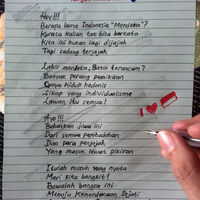 Hey!!!
Berapa lama Indonesia "Merdeka"?
Kurasa kalian tak bisa berkata
Kita ini bukan lagi dijajah
Tapi sedang terjajah
Lahir merdeka, Batin terancam?
Banyak perang pemikiran
Gaya hidup hedonis
Sikap yang individualisme
Lawan itu semua!
I
Ayo!!!
Bebaskan jiwa ini
Dari semua pembodohan
Dan para penjajah
Yang masuk lewat pikiran
Itulah musuh yang nyata
Mari kita bangkit!
Bawalah bangsa ini
Menuju Kemerdekaan Sejati